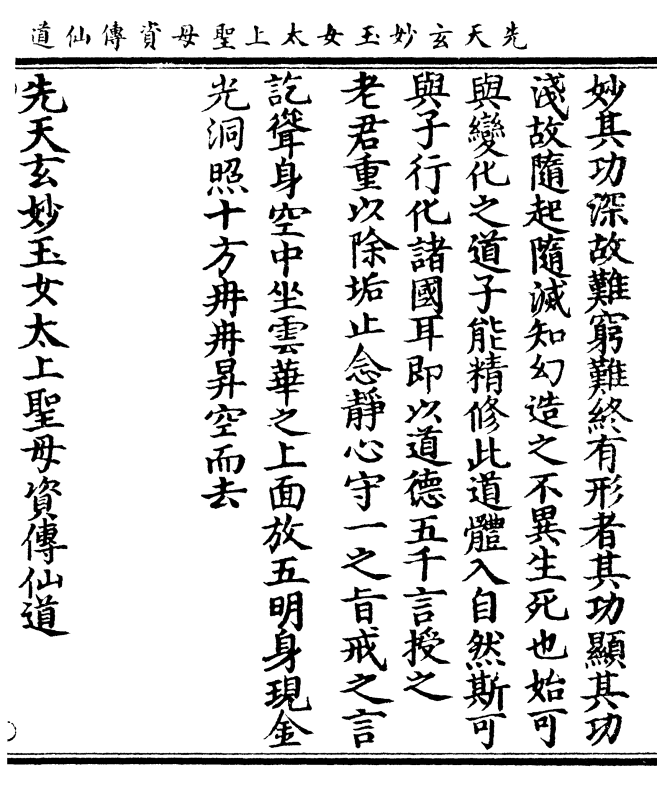 先天玄妙玉女太上聖母資傳仙道
妙其功深故難窮難終有形者其功顯其功
淺故隨起隨滅知幻造之不異生死也始可
與變化之道子能精修此道體入自然斯可
與子行化諸國耳即以道德五千言授之
老君重以除垢止念靜心守一之旨戒之言
訖聳身空中坐雲華之上面放五明身現金
光洞照十方冉冉昇空而去
先天玄妙玉女太上聖母資傳仙道